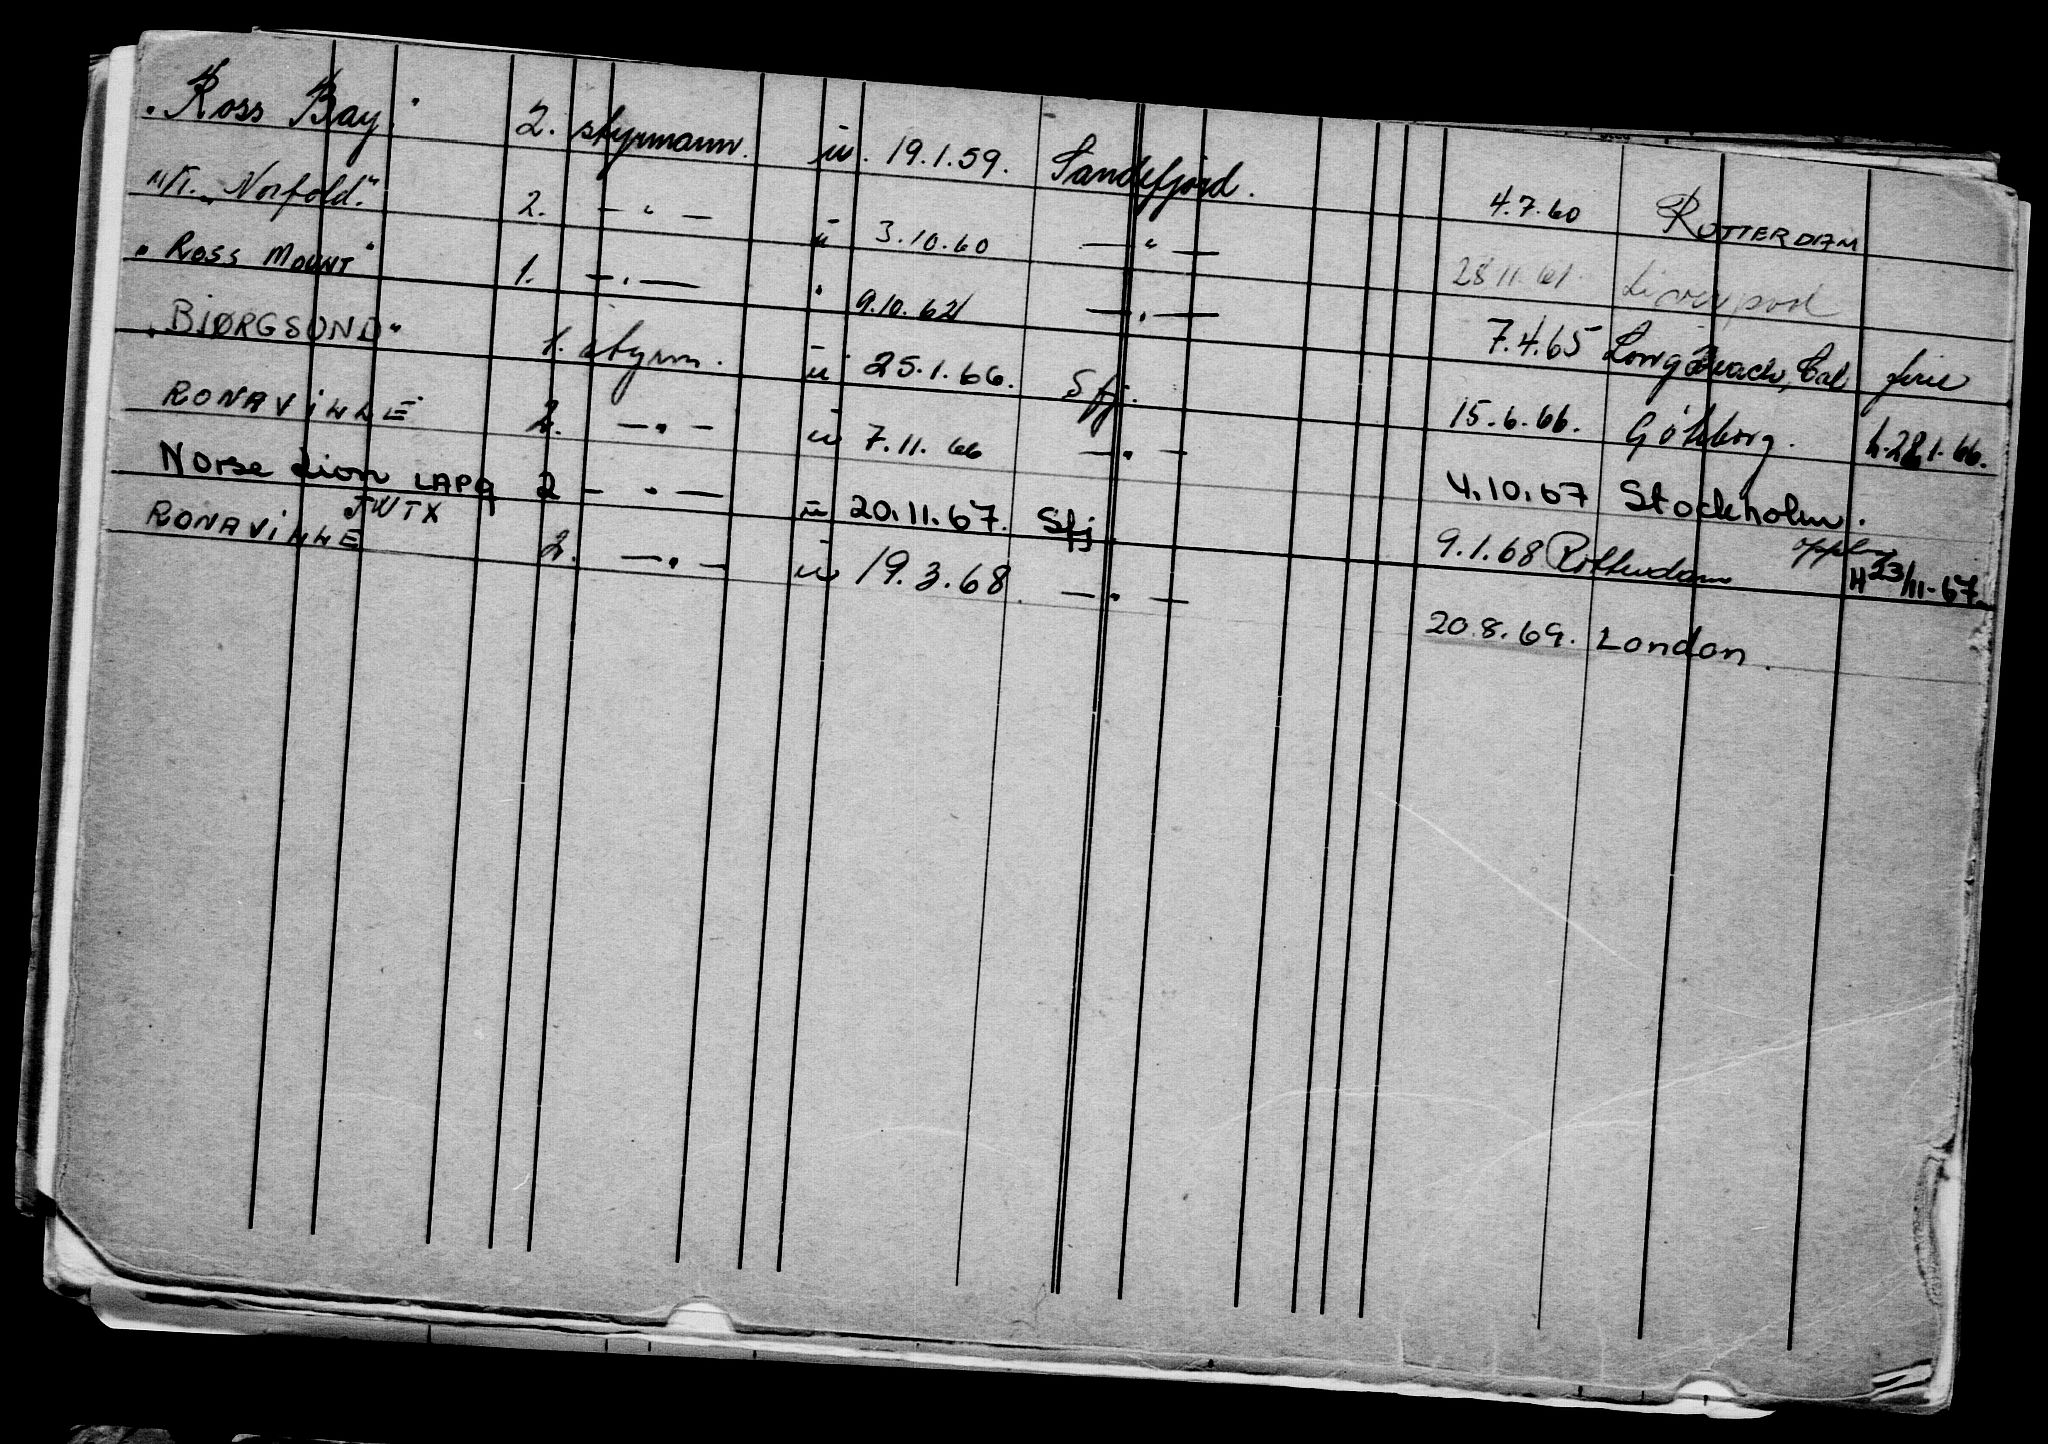 "Ross Bay." 2. styrmann. ū. 19.1.59. Sandefjord. 4.7.60 ROTTERDAM
M/T. "Norfold." 2. — " — ū 3.10.60 — " — 28.11.61. Liverpool
"ROSS MOUNT" 1. — " — " 9.10.62 — " — 7.4.65 Long Beach, Cal ferie
"BJØRGSUND" 1. styrm. ū 25.1.66. Sfj. 15.6.66. Göteborg. h. 28.1.66.
RONAVILLE 2. — " — ū 7.11.66 — " — 4.10.67 Stockholm.
Norse Lion LAPQ 2 — " — ū 20.11.67. Sfj. 9.1.68 Rotterdam H 23/11-67.
JWTX
RONAVILLE 2. — " — ū 19.3.68. — " — 20.8.69. London.